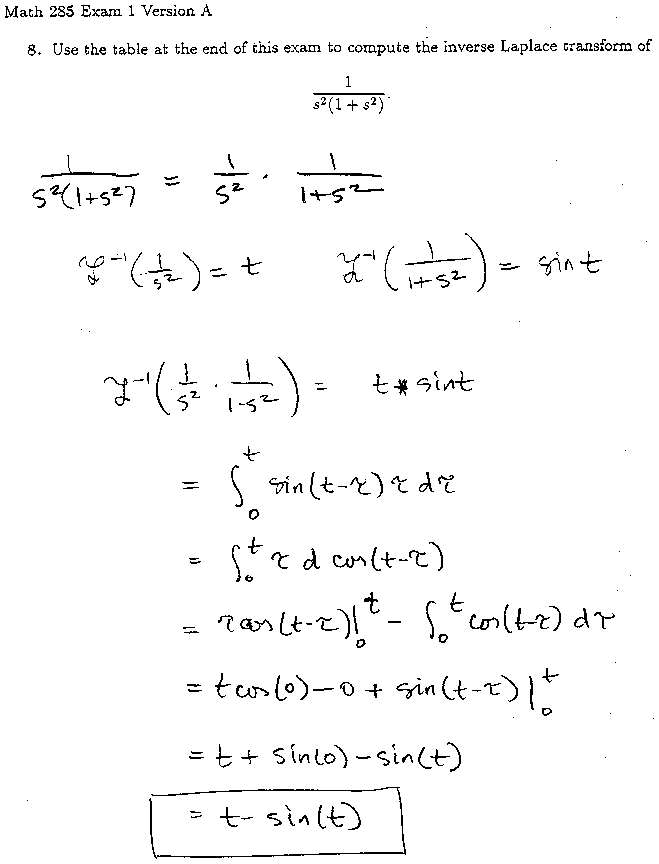 Math 285 Exam 1 Version A
8. Use the table at the end of this exam to compute the inverse Laplace transform of
1/(s²(1 + s²)).
1/(s²(1+s²)) = 1/s² · 1/(1+s²)
ℒ⁻¹(1/s²) = t    ℒ⁻¹(1/(1+s²)) = sin t
ℒ⁻¹(1/s² · 1/(1-s²)) = t * sin t
= ∫₀ᵗ sin(t-τ) τ dτ
= ∫₀ᵗ τ d cos(t-τ)
= τ cos(t-τ)|₀ᵗ - ∫₀ᵗ cos(t-τ) dτ
= t cos(0) - 0 + sin(t-τ)|₀ᵗ
= t + sin(0) - sin(t)
= t - sin(t)